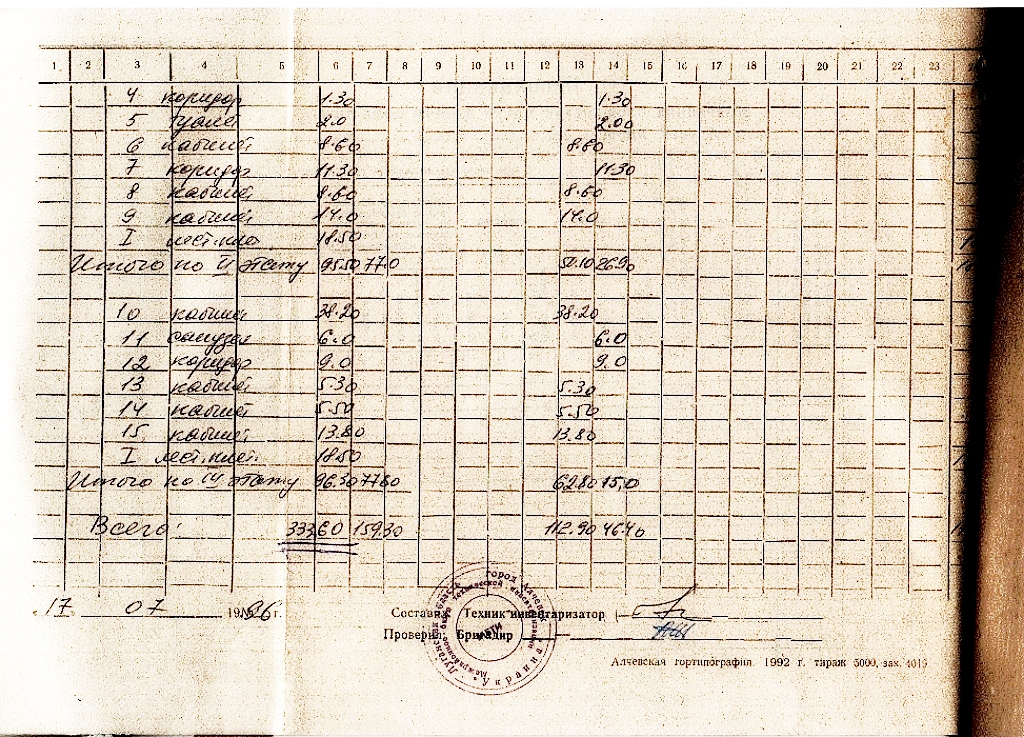 1 2 3 4 5 6 7 8 9 10 11 12 13 14 15 16 17 18 19 20 21 22 23
4 коридор 1.30 1.30
5 туалет 2.0 2.00
6 кабинет 8.60 8.60
7 коридор 11.30 11.30
8 кабинет 8.60 8.60
9 кабинет 14.0 14.0
I лест.клет. 18.50
Итого по II этажу 95.50 77.0 50.10 26.90
10 кабинет 38.20 38.20
11 санузел 6.0 6.0
12 коридор 9.0 9.0
13 кабинет 5.30 5.30
14 кабинет 5.50 5.50
15 кабинет 13.80 13.80
I лест.клет. 18.50
Итого по III этажу 96.30 77.80 62.80 15,0
Всего: 333,60 159.30 112.90 46.40
17 07 1996 г.
Составил: Техник инвентаризатор
Проверил: Бригадир
город Алчевск
Украина
Луганская область
Алчевская гортипография 1992 г. тираж 5000, зак. 4015